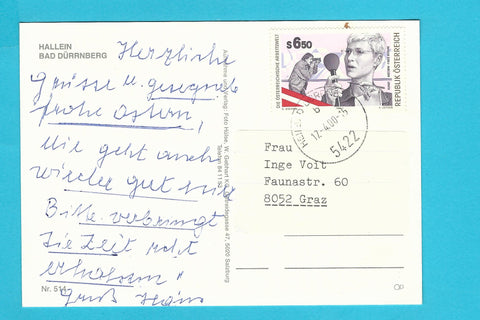 HALLEIN
BAD DÜRRNBERG
Herzliche
Grüsse u. gesegnete
frohe Ostern,
Mir geht auch
wieder gut
Bitte verbringt
die Zeit recht
erholsam
Gruß Hans
Nr. 514
Aufnahme und Verlag: Foto Hölse, W. Gebhart KG, 47, 5020 Salzburg
Telefon 84 11 92
S 6.50
DIE ÖSTERREICHISCHE ARBEITSWELT
REPUBLIK ÖSTERREICH
12.4.00
5422
Frau
Inge Voit
Faunastr. 60
8052 Graz